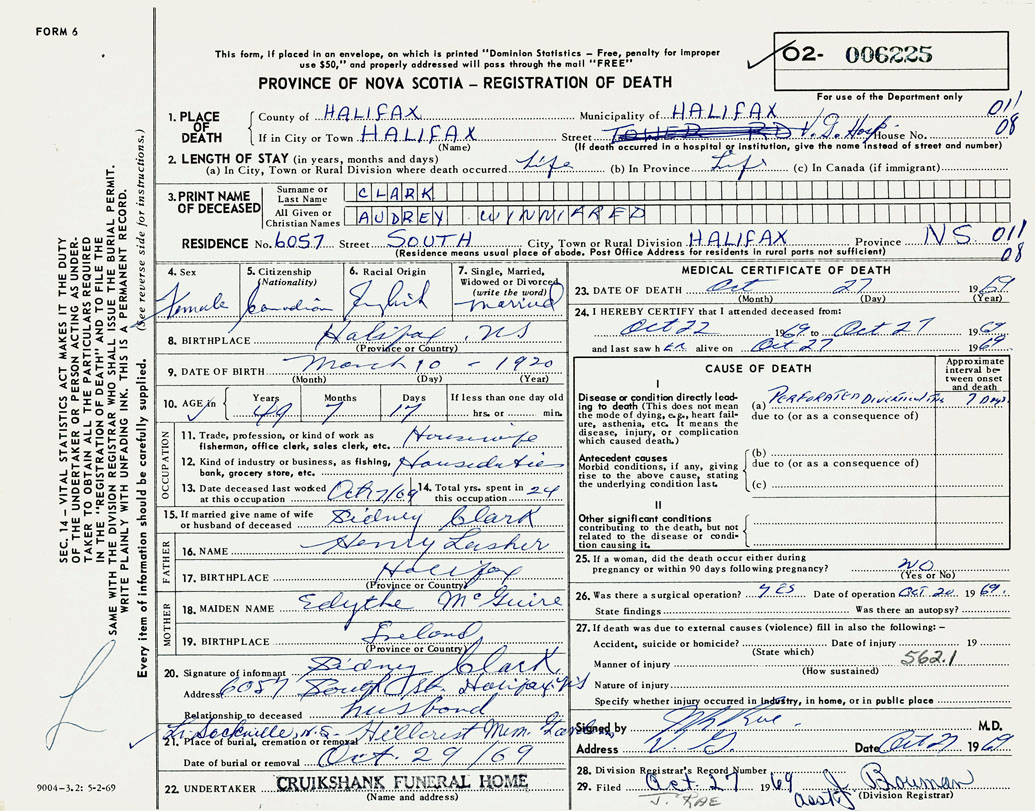 FORM 6
This form, if placed in an envelope, on which is printed "Dominion Statistics – Free, penalty for improper
use $50," and properly addressed will pass through the mail "FREE"
PROVINCE OF NOVA SCOTIA – REGISTRATION OF DEATH
02- 006225
For use of the Department only
011
08
1. PLACE OF DEATH
County of HALIFAX Municipality of HALIFAX
If in City or Town HALIFAX Street TOWER RD V. G. Hosp. House No.
(Name) (If death occurred in a hospital or institution, give the name instead of street and number)
2. LENGTH OF STAY (in years, months and days)
(a) In City, Town or Rural Division where death occurred Life (b) In Province Life (c) In Canada (if immigrant)
3. PRINT NAME OF DECEASED
Surname or Last Name CLARK
All Given or Christian Names AUDREY WINNIFRED
RESIDENCE No. 6057 Street SOUTH City, Town or Rural Division HALIFAX Province NS 011
08
(Residence means usual place of abode. Post Office Address for residents in rural parts not sufficient)
4. Sex Female
5. Citizenship (Nationality) Canadian
6. Racial Origin English
7. Single, Married, Widowed or Divorced (write the word) Married
8. BIRTHPLACE Halifax, NS
(Province or Country)
9. DATE OF BIRTH March 10 - 1920
(Month) (Day) (Year)
10. AGE in Years 49 Months 7 Days 17 If less than one day old hrs. or min.
OCCUPATION
11. Trade, profession, or kind of work as fisherman, office clerk, sales clerk, etc. Housewife
12. Kind of industry or business, as fishing, bank, grocery store, etc. Houseduties
13. Date deceased last worked at this occupation Oct 7/69
14. Total yrs. spent in this occupation 24
15. If married give name of wife or husband of deceased Sidney Clark
FATHER
16. NAME Henry Lasher
17. BIRTHPLACE Halifax
(Province or Country)
MOTHER
18. MAIDEN NAME Edythe McGuire
19. BIRTHPLACE Ireland
(Province or Country)
20. Signature of informant Sidney Clark
Address 6057 South St. Halifax NS
Relationship to deceased husband
Sackville, N.S. Hillcrest Mem. Gardens
21. Place of burial, cremation or removal
Date of burial or removal Oct. 29/69
22. UNDERTAKER CRUIKSHANK FUNERAL HOME
(Name and address)
MEDICAL CERTIFICATE OF DEATH
23. DATE OF DEATH Oct 27 1969
(Month) (Day) (Year)
24. I HEREBY CERTIFY that I attended deceased from:
Oct 22 1969 to Oct 27 1969
and last saw her alive on Oct 27 1969
CAUSE OF DEATH
Approximate interval between onset and death
I
Disease or condition directly leading to death (This does not mean the mode of dying, e.g., heart failure, asthenia, etc. It means the disease, injury, or complication which caused death.)
(a) PERFORATED DIVERTICULITIS 7 Days
due to (or as a consequence of)
Antecedent causes
Morbid conditions, if any, giving rise to the above cause, stating the underlying condition last.
(b)
due to (or as a consequence of)
(c)
II
Other significant conditions
contributing to the death, but not related to the disease or condition causing it.
25. If a woman, did the death occur either during pregnancy or within 90 days following pregnancy? NO
(Yes or No)
26. Was there a surgical operation? YES Date of operation Oct. 1969.
State findings Was there an autopsy?
27. If death was due to external causes (violence) fill in also the following: –
Accident, suicide or homicide? Date of injury 19
(State which)
Manner of injury 562.1
(How sustained)
Nature of injury
Specify whether injury occurred in industry, in home, or in public place
Signed by M.D.
Address V. G. Date Oct 27 1969
28. Division Registrar's Record Number
29. Filed Oct 27 1969 J. Bowman
asst (Division Registrar)
J. RAE
9004-3.2: 5-2-69
SEC. 14 – VITAL STATISTICS ACT MAKES IT THE DUTY
OF THE UNDERTAKER OR PERSON ACTING AS UNDER-
TAKER TO OBTAIN ALL THE PARTICULARS REQUIRED
IN THE "REGISTRATION OF DEATH" AND TO FILE THE
SAME WITH THE DIVISION REGISTRAR WHO SHALL ISSUE THE BURIAL PERMIT.
WRITE PLAINLY WITH UNFADING INK. THIS IS A PERMANENT RECORD.
Every item of information should be carefully supplied. (See reverse side for instructions.)